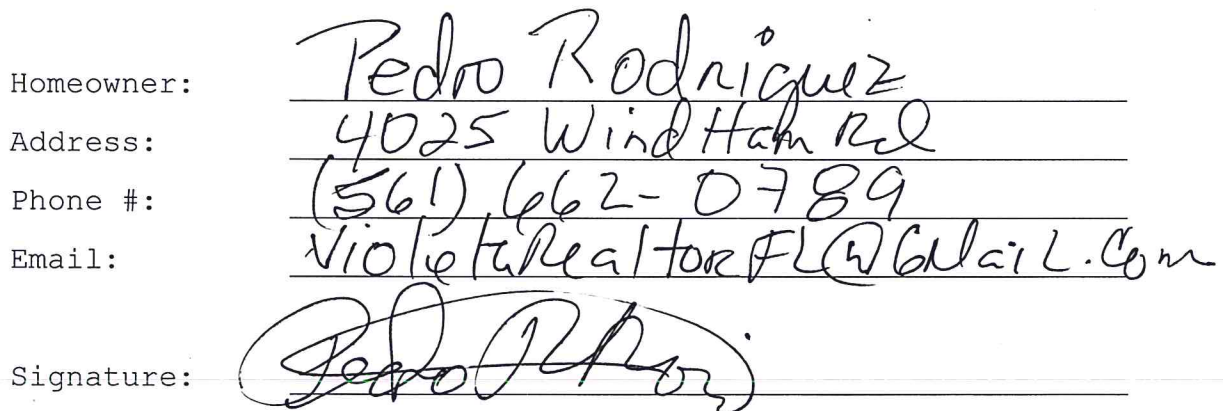 Homeowner: Pedro Rodriguez
Address: 4025 WindHam Rd
Phone #: (561) 662-0789
Email: VioletaRealtorFL@GMaiL.Com
Signature: Pedro